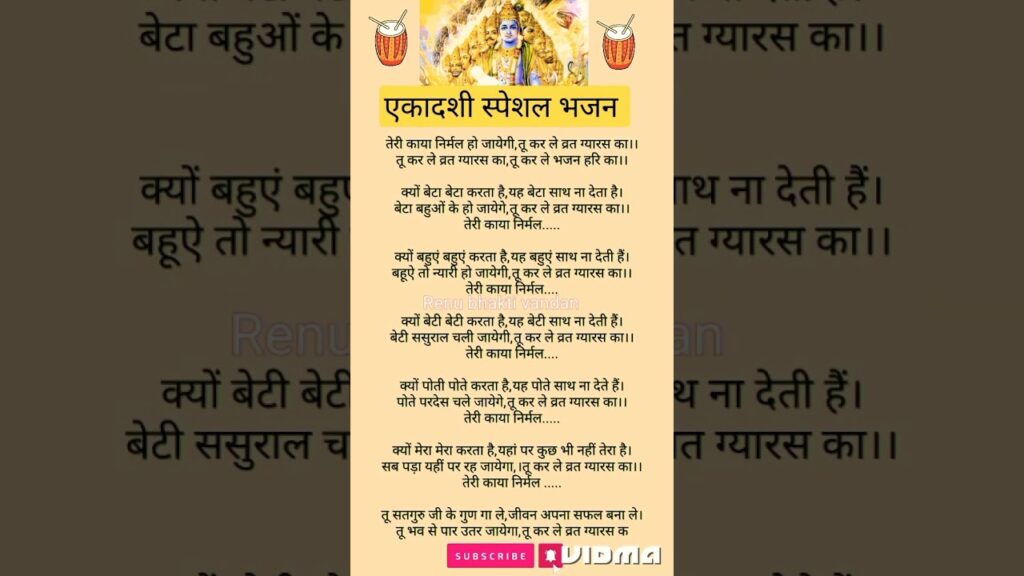 एकादशी स्पेशल भजन
तेरी काया निर्मल हो जायेगी,तू कर ले व्रत ग्यारस का।।
तू कर ले व्रत ग्यारस का,तू कर ले भजन हरि का।।
क्यों बेटा बेटा करता है,यह बेटा साथ ना देता है।
बेटा बहुओं के हो जायेगे,तू कर ले व्रत ग्यारस का।।
तेरी काया निर्मल.....
क्यों बहुएं बहुएं करता है,यह बहुएं साथ ना देती हैं।
बहूऐ तो न्यारी हो जायेगी,तू कर ले व्रत ग्यारस का।।
तेरी काया निर्मल....
Renu bhakti vandan
क्यों बेटी बेटी करता है,यह बेटी साथ ना देती हैं।
बेटी ससुराल चली जायेगी,तू कर ले व्रत ग्यारस का।।
तेरी काया निर्मल....
क्यों पोती पोते करता है,यह पोते साथ ना देते हैं।
पोते परदेस चले जायेगे,तू कर ले व्रत ग्यारस का।।
तेरी काया निर्मल.....
क्यों मेरा मेरा करता है,यहां पर कुछ भी नहीं तेरा है।
सब पड़ा यहीं पर रह जायेगा,।तू कर ले व्रत ग्यारस का।।
तेरी काया निर्मल .....
तू सतगुरु जी के गुण गा ले,जीवन अपना सफल बना ले।
तू भव से पार उतर जायेगा,तू कर ले व्रत ग्यारस क
SUBSCRIBE
VIDMA
बेटा बहुओं के
त ग्यारस का।।
क्यों बहुएं बहुएं
ाथ ना देती हैं।
बहूऐ तो न्यारी
त ग्यारस का।।
Renu
an
क्यों बेटी बेटी
थ ना देती हैं।
बेटी ससुराल च
त ग्यारस का।।